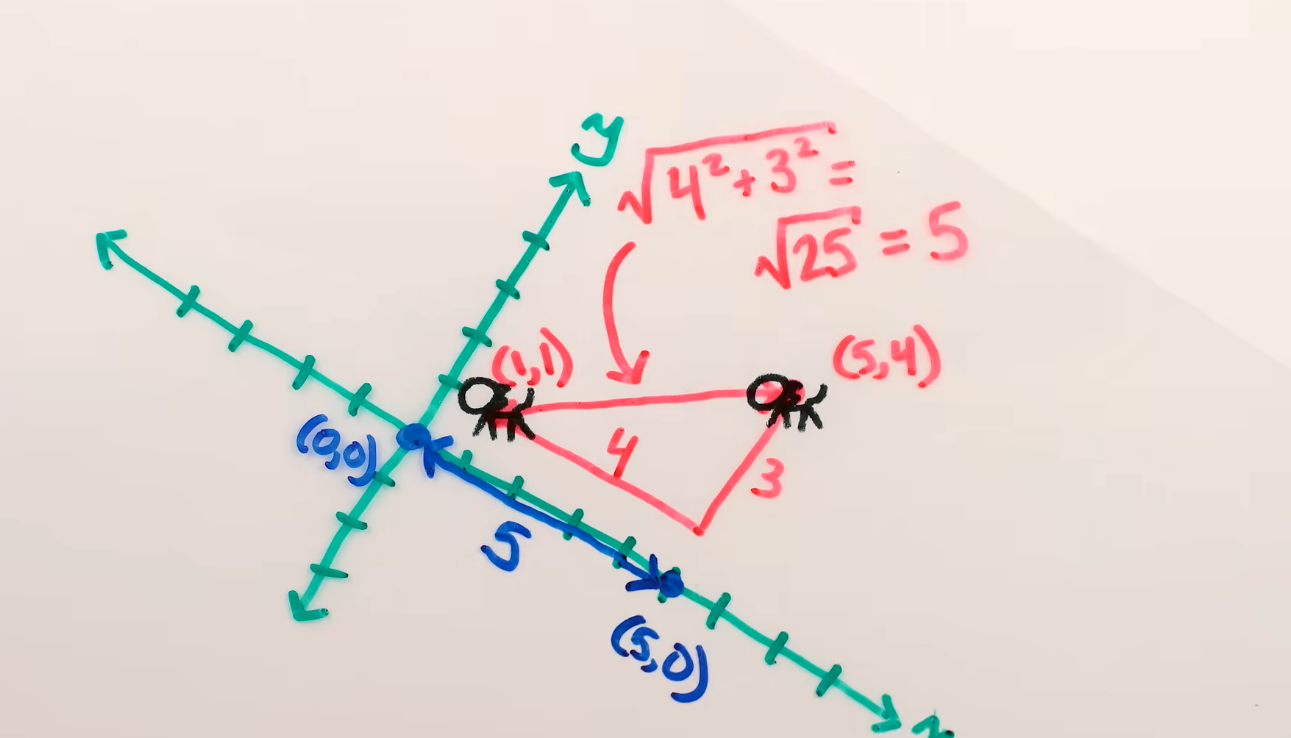 y
√4²+3² =
√25 = 5
(1,1)
(5,4)
4
3
(0,0)
5
(5,0)